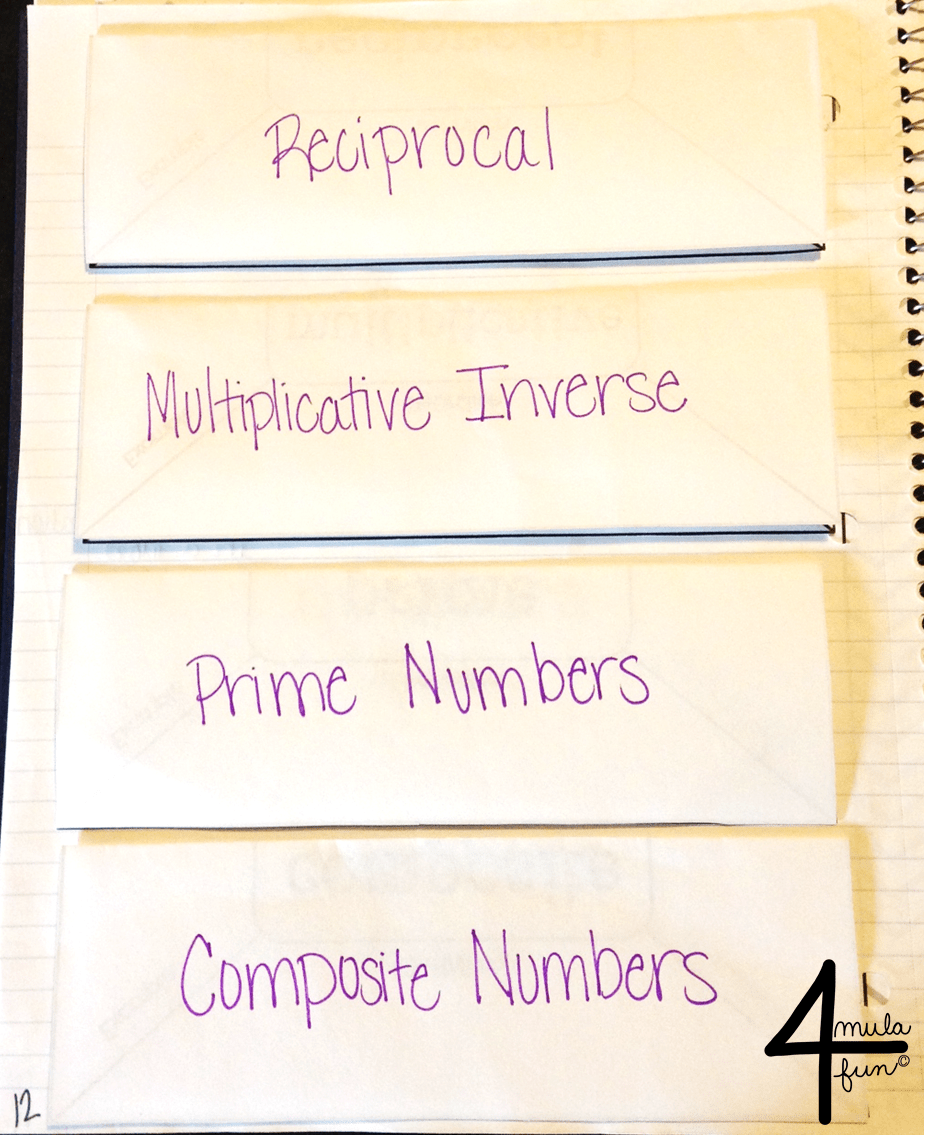 Reciprocal
Multiplicative Inverse
Prime Numbers
Composite Numbers
12
4mula
fun©